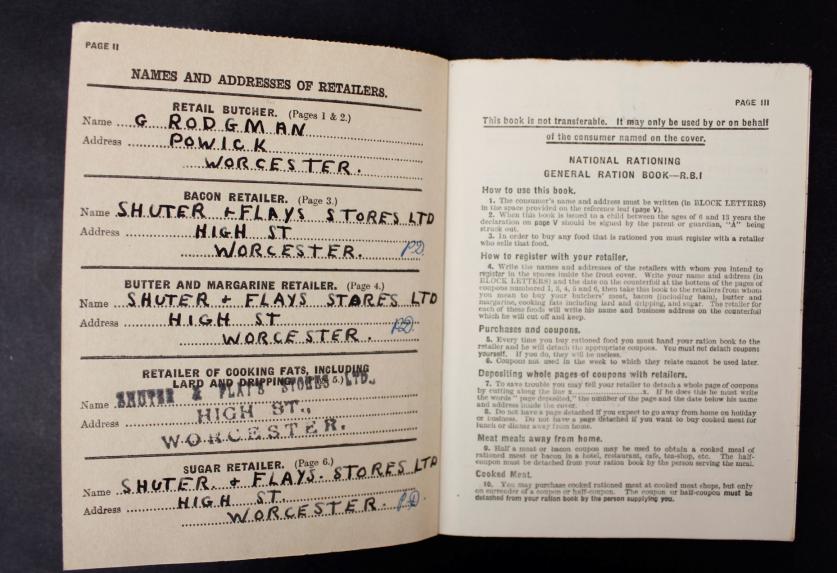 PAGE II
NAMES AND ADDRESSES OF RETAILERS.
RETAIL BUTCHER. (Pages 1 & 2.)
Name G RODGMAN
Address POWICK
WORCESTER.
BACON RETAILER. (Page 3.)
Name SHUTER + FLAYS STORES LTD
Address HIGH ST
WORCESTER. P.D.
BUTTER AND MARGARINE RETAILER. (Page 4.)
Name SHUTER + FLAYS STORES LTD
Address HIGH ST
WORCESTER. P.D.
RETAILER OF COOKING FATS, INCLUDING
LARD AND DRIPPING. 5.)
Name SHUTER & FLAYS STORES LTD.,
Address HIGH ST.,
WORCESTER.
SUGAR RETAILER. (Page 6.)
Name SHUTER + FLAYS STORES LTD
Address HIGH ST.
WORCESTER. P.D.
PAGE III
This book is not transferable. It may only be used by or on behalf
of the consumer named on the cover.
NATIONAL RATIONING
GENERAL RATION BOOK—R.B.1
How to use this book.
1. The consumer's name and address must be written (in BLOCK LETTERS)
in the space provided on the reference leaf (page V).
2. When this book is issued to a child between the ages of 6 and 13 years the
declaration on page V should be signed by the parent or guardian, "A" being
struck out.
3. In order to buy any food that is rationed you must register with a retailer
who sells that food.
How to register with your retailer.
4. Write the names and addresses of the retailers with whom you intend to
register in the spaces inside the front cover. Write your name and address (in
BLOCK LETTERS) and the date on the counterfoil at the bottom of the pages of
coupons numbered 1, 3, 4, 5 and 6, then take this book to the retailers from whom
you mean to buy your butchers' meat, bacon (including ham), butter and
margarine, cooking fats including lard and dripping, and sugar. The retailer for
each of these foods will write his name and business address on the counterfoil
which he will cut off and keep.
Purchases and coupons.
5. Every time you buy rationed food you must hand your ration book to the
retailer and he will detach the appropriate coupons. You must not detach coupons
yourself. If you do, they will be useless.
6. Coupons not used in the week to which they relate cannot be used later.
Depositing whole pages of coupons with retailers.
7. To save trouble you may tell your retailer to detach a whole page of coupons
by cutting along the line x..........x. If he does this he must write
the words "page deposited," the number of the page and the date below his name
and address inside the cover.
8. Do not have a page detached if you expect to go away from home on holiday
or business. Do not have a page detached if you want to buy cooked meat for
lunch or dinner away from home.
Meat meals away from home.
9. Half a meat or bacon coupon may be used to obtain a cooked meal of
rationed meat or bacon in a hotel, restaurant, café, tea-shop, etc. The half-
coupon must be detached from your ration book by the person serving the meal.
Cooked Meat.
10. You may purchase cooked rationed meat at cooked meat shops, but only
on surrender of a coupon or half-coupon. The coupon or half-coupon must be
detached from your ration book by the person supplying you.